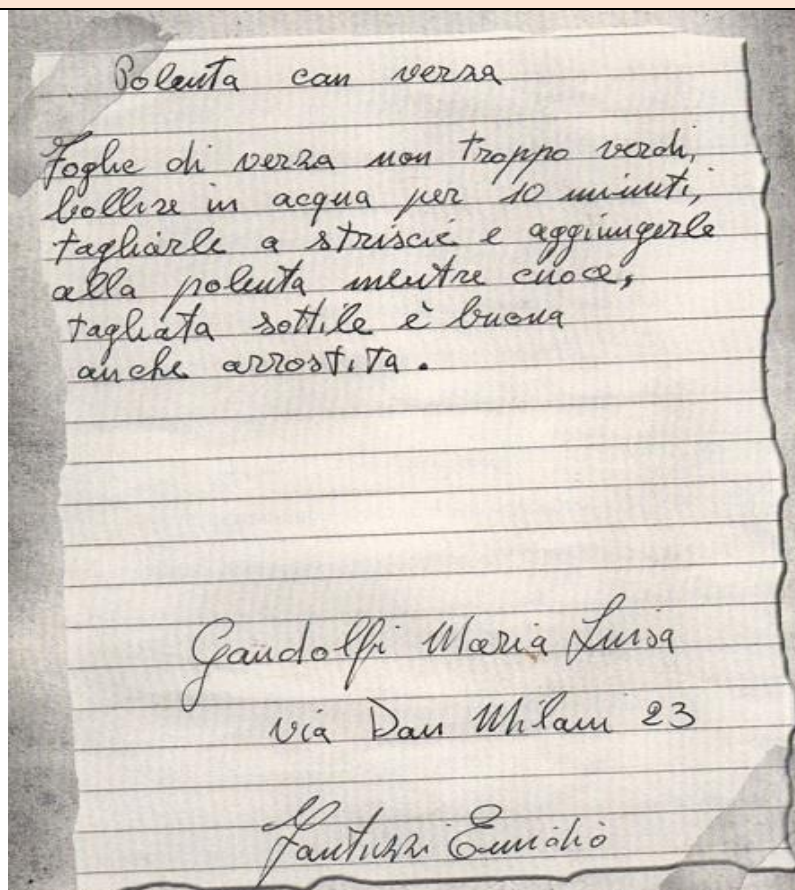 Polenta con verza
Foglie di verza non troppo verdi,
bollire in acqua per 10 minuti,
tagliarle a striscie e aggiungerle
alla polenta mentre cuoce,
tagliata sottile è buona
anche arrostita.
Gandolfi Maria Luisa
via Don Milani 23
Fantuzzi Emidio